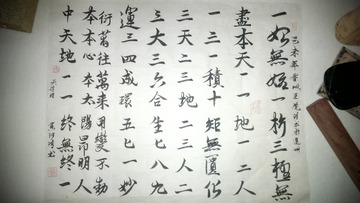 一始無始一析三極無
盡本天一一地一二人
一三一積十矩無匱化
三天二三地二三人二
三大三六合生七八九
運三四成環五七一妙
衍萬往萬來用變不動
本本心本太陽昂明人
中天地一一終無終一